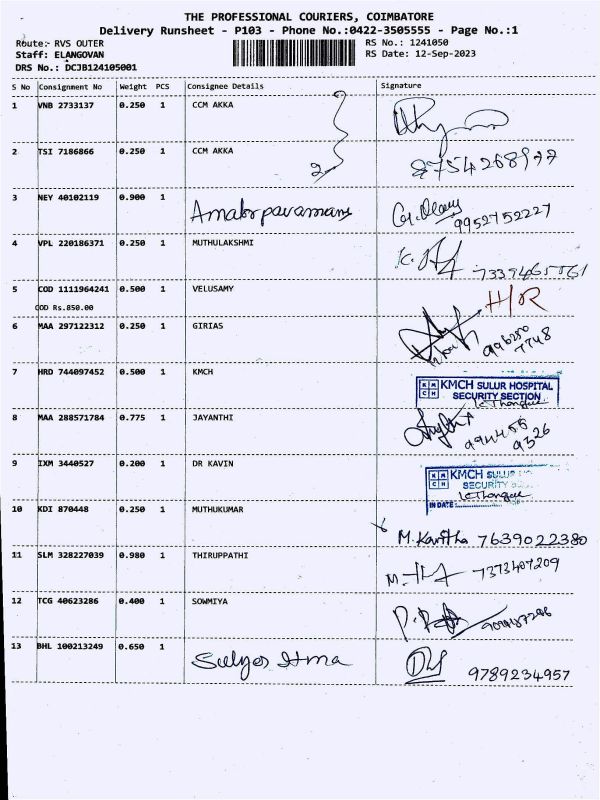 THE PROFESSIONAL COURIERS, COIMBATORE
Delivery Runsheet - P103 - Phone No.:0422-3505555 - Page No.:1
Route:- RVS OUTER RS No.: 1241050
Staff: ELANGOVAN RS Date: 12-Sep-2023
DRS No.: DCJB124105001
S No Consignment No Weight PCS Consignee Details Signature
1 VNB 2733137 0.250 1 CCM AKKA
2 TSI 7186866 0.250 1 CCM AKKA 2 8754268977
3 NEY 40102119 0.900 1 9952752227
4 VPL 220186371 0.250 1 MUTHULAKSHMI
5 COD 1111964241 0.500 1 VELUSAMY H/R
COD Rs.850.00
6 MAA 297122312 0.250 1 GIRIAS 996250
7748
7 HRD 744097452 0.500 1 KMCH KMCH SULUR HOSPITAL
SECURITY SECTION
8 MAA 288571784 0.775 1 JAYANTHI 994455
9326
9 IXM 3440527 0.200 1 DR KAVIN KMCH SULUR
SECURITY
IN DATE:
10 KDI 870448 0.250 1 MUTHUKUMAR M. Kavitha 7639022380
11 SLM 328227039 0.980 1 THIRUPPATHI 7373407209
12 TCG 40623286 0.400 1 SOWMIYA
13 BHL 100213249 0.650 1 9789234957